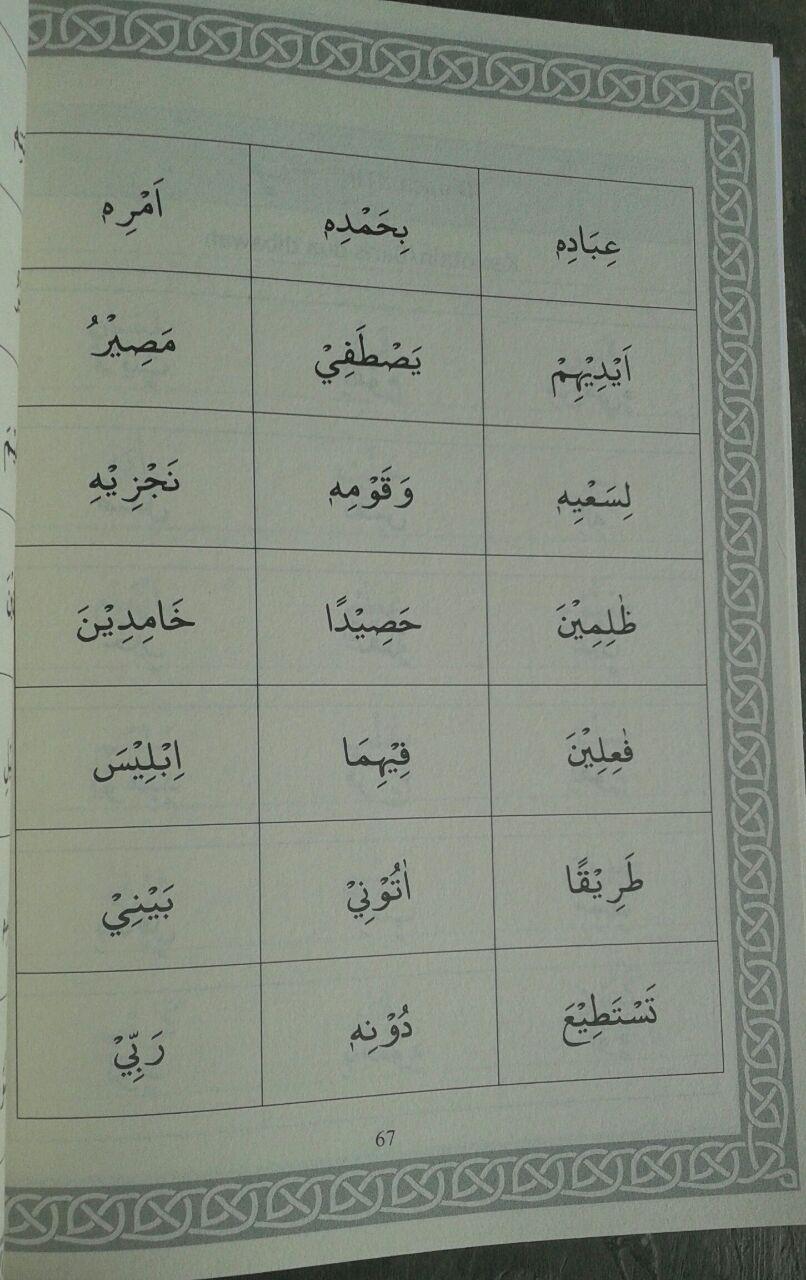 عِبَادِهٖ بِحَمْدِهٖ اَمْرِهٖ
اَيْدِيْهِمْ يَصْطَفِيْ مَصِيْرُ
لِسَعْيِهٖ وَقَوْمِهٖ نَجْزِيْهِ
ظٰلِمِيْنَ حَصِيْدًا خَامِدِيْنَ
فٰعِلِيْنَ فِيْهِمَا اِبْلِيْسَ
طَرِيْقًا اٰتُوْنِيْ بَيْنِيْ
تَسْتَطِيْعَ دُوْنِهٖ رَبِّيْ
67